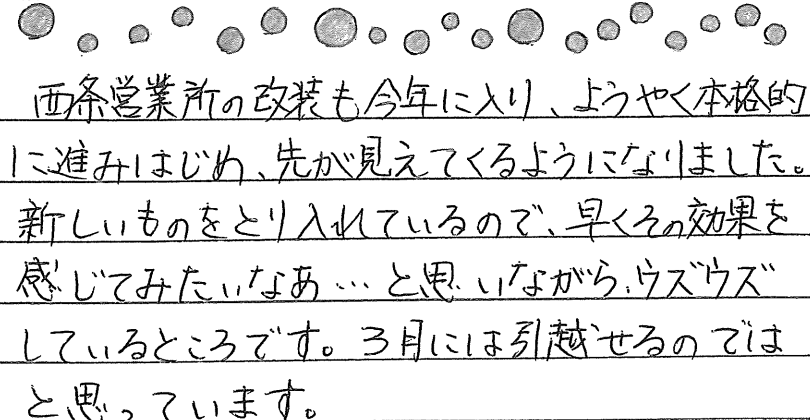 西条営業所の改装も今年に入り、ようやく本格的
に進みはじめ、先が見えてくるようになりました。
新しいものをとり入れているので、早くその効果を
感じてみたいなあ…と思いながら、ウズウズ
しているところです。3月には引越せるのでは
と思っています。